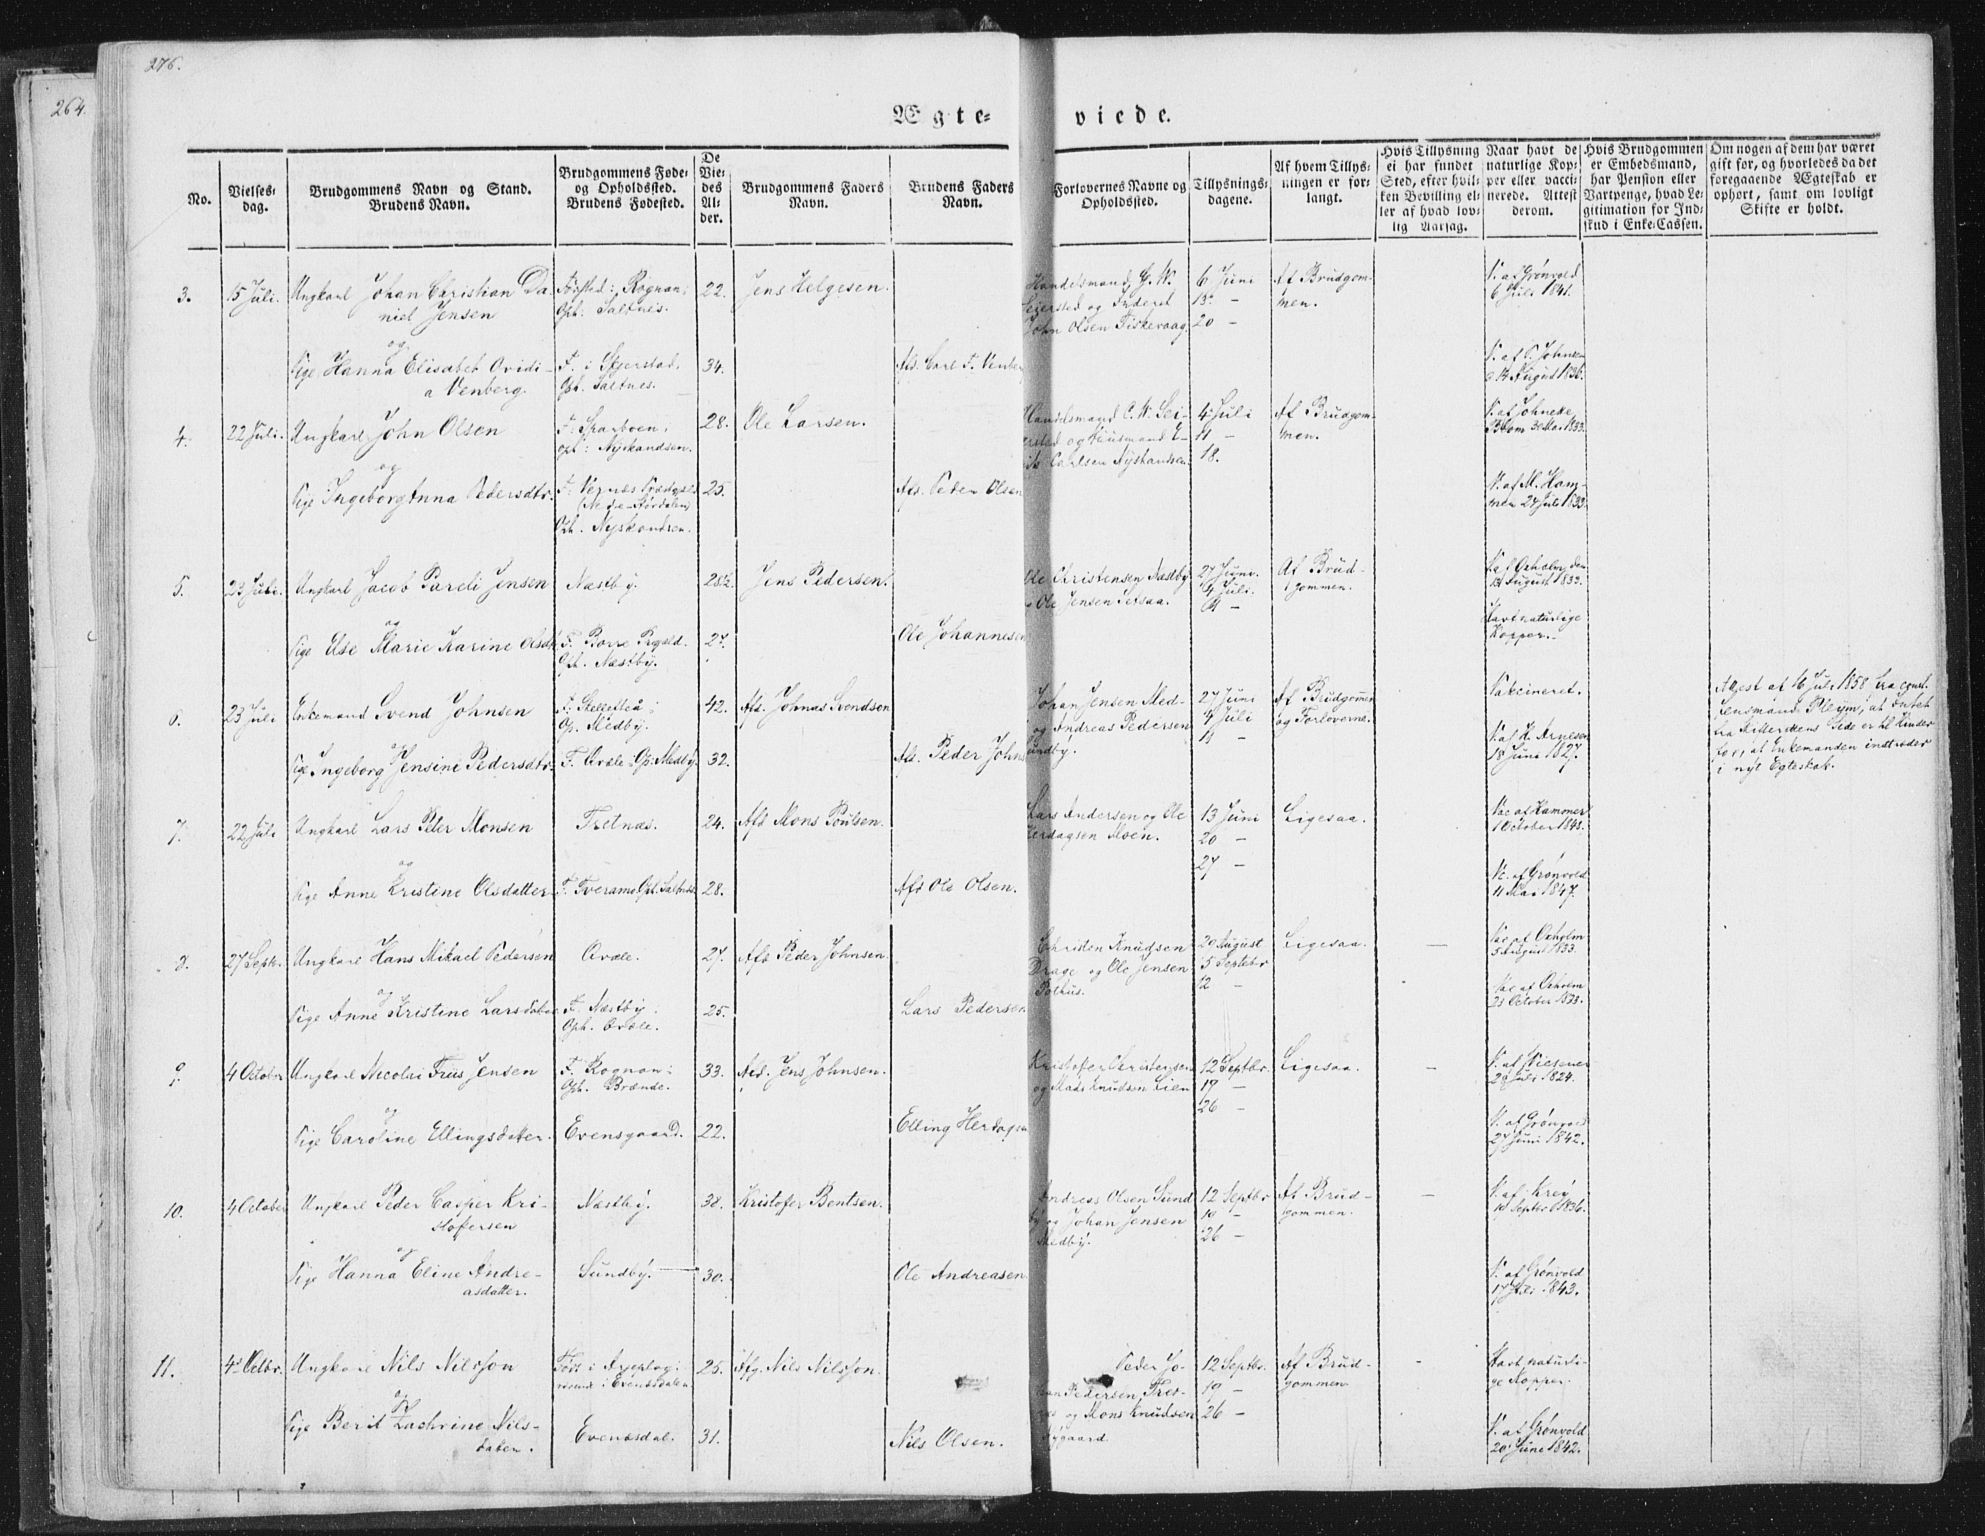 276.
264.
Ægte- viede.
No.
Vielses-
dag.
Brudgommens Navn og Stand.
Brudens Navn.
Brudgommens Føde-
og Opholdssted.
Brudens Fødested.
De
Vie-
des
Al-
der.
Brudgommens Faders
Navn.
Brudens Faders
Navn.
Forlovernes Navne og
Opholdssted.
Tillysnings-
dagene.
Af hvem Tillys-
ningen er for-
langt.
Hvis Tillysning
ei har fundet
Sted, efter hvil-
ken Bevilling el-
ler af hvad lov-
lig Aarsag.
Naar havt de
naturlige Kop-
per eller vacci-
nerede. Attest
derom.
Hvis Brudgommen
er Embedsmand,
har Pension eller
Vartpenge, hvad Le-
gitimation for Ind-
skud i Enke-Cassen.
Om nogen af dem har været
gift før, og hvorledes da det
foregaaende Ægteskab er
ophørt, samt om lovligt
Skifte er holdt.
3. 15 Juli. Ungkarl Johan Christian Da-
niel Jensen
Rognan;
Oph. Saltnes.
22. Jens Helgesen.
Handelsmand G. W.
Seiersted og Inderst
John Olsen Fiskevaag.
6 Juni
13 -
20 -
Af Brudgom-
men.
V. af Grønvold
6 Juli 1841.
og
Pige Hanna Elisabet Ovidi-
a Venberg.
F. i Skjerstad,
Oph. Saltnes.
34.
Afd. Carl F. Venberg
V. af P. Johnsen
14 August 1836.
4. 22 Juli. Ungkarl John Olsen
F. Skarboen;
oph: Nyskandsen.
28. Ole Larsen.
Handelsmand C. W. Sei-
ersted og Huusmand E-
Carlsen Nystandsen.
4 Juli
11 -
18.
Af Brudgom-
men.
V. af Johneke
1833.
og
Pige Ingeborg Anna Pedersdtr.
F. Vernæs Prægjeld
(Nedre Størdalen)
Oph. Nyskandsen.
25.
Afd. Peder Olsen
V. af M. Ham-
mer 24 Juli 1833.
5. 23 Juli. Ungkarl Jacob Pareli Jensen
Næstby.
28½. Jens Pedersen.
Ole Christensen Næstby
Ole Jensen Setsaa.
27 Juni.
4 Juli.
11 -
Af Brud-
gommen.
V. af Oxholm den
August 1833.
og
Pige Else Marie Karine Olsdtr.
F. Borre Prgjeld.
Oph. Næstby.
27.
Ole Johannesen
Havt naturlige
Kopper.
6. 23 Juli Enkemand Svend Johnsen
F. Skellefteå;
Op. Medby.
42. Afd. Johnas Svendsen
Johan Jensen Med-
og Andreas Pedersen
Sundby.
27 Juni
4 Juli
11 -
Af Brudgommen
og Forloverne.
Vakcineret.
Attest af 16 Juli 1858 fra const.
Lensmand Pleym, at Intet
fra Skifterettens Side er til Hinder
for, at Enkemanden indtræder
i nyt Egteskab.
og
Pige Ingeborg Jensine Pedersdtr.
F. Qvæle: Op: Medby.
32.
Afd. Peder Johns
V. af K. Arnesen
18 Juni 1827.
7. 22 Juli Ungkarl Lars Peter Monsen
Tretnæs.
24. Afd Mons Poulsen.
Lars Andersen og Ole
Herdagsen Moen.
13 Juni
20 -
27 -
Ligesaa.
Vac. af Hammer
October 1848.
og
Pige Anne Kristine Olsdatter
F. Tveramo, Oph. Saltnes
28.
Afd Ole Olsen.
Vc. af Grønvold
11 Mai 1847.
8. 27 Septb. Ungkarl Hans Mikael Pedersen
Qvæle.
27. Afd Peder Johnsen
Christen Knudsen
Drage og Ole Jensen
Pothus.
29 August
5 Septebr
12 -
Ligesaa.
-
Vac. af Oxholm
5 August 1833.
og
Pige Anne Kristine Larsdatter
F. Næstby;
Oph. Qvæle.
25.
Lars Pedersen
Vac. af Oxholm
23 October 1833.
9. 4 October Ungkarl Nicolai Friis Jensen
F. Rognan;
Oph. Brænde.
33. Afd. Jens Johnsen.
Kristofer Christensen
og Mads Knudsen Lien
12 Septbr.
19 -
26 -
Ligesaa.
-
V. af Wiesener
29 Juli 1824.
og
Pige Caroline Ellingsdatter.
Evensgaard.
22.
Elling Herdagsen
V. af Grønvold
27 Juni 1842.
10. 4 October Ungkarl Peder Casper Kri-
stofersen
Næstby.
38. Kristofer Bentsen.
Andreas Olsen Sund
by og Johan Jensen
Medby.
12 Septbr
19 -
26 -
Af Brud-
gommen.
-
V. af Krey
Septbr 1836.
og
Pige Hanna Eline Andre-
asdatter.
Sundby.
30.
Ole Andreasen
V. af Grønvold
17 Juli 1843.
11. 4 Octbr. Ungkarl Nils Nilsson
Født i Arjeplog;
i Evensdalen
25. Afg. Nils Nilsson.
Peder Jo-
han Pedersen Tret-
næs og Mons Knudsen
Nygaard.
12 Septbr.
19 -
26 -
Af Brud-
gommen
-
Havt naturli-
ge Kopper.
og
Pige Berit Zachrine Nils-
datter.
Evenesdal.
31.
Nils Olsen.
V. af Grønvold
20 June 1842.